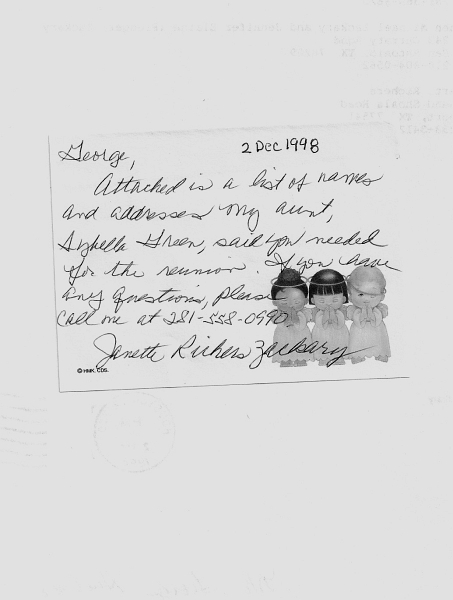 2 Dec 1998
George,
Attached is a list of names
and addresses my aunt,
Sybella Green, said you needed
for the reunion. If you have
any questions, please
call me at 281-558-0990.
Janette Richers Zachary
© HMK. CDS.